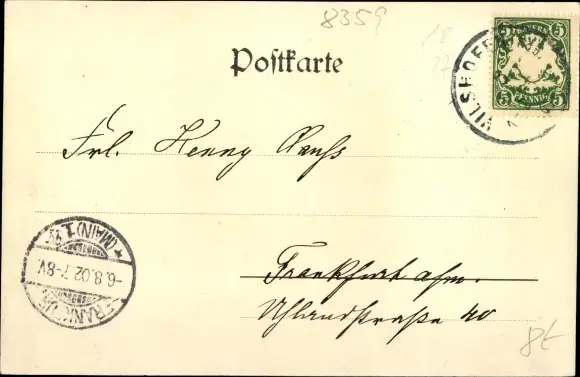 8359
18
17
BAYERN
5 5
5 PFENNIG 5
VILSHOFEN
Postkarte
Frl. Henny
Frankfurt a/m.
Uhlandstraße 40
FRANKFURT (MAIN) 1
-6.8.02.7-8V.
8t